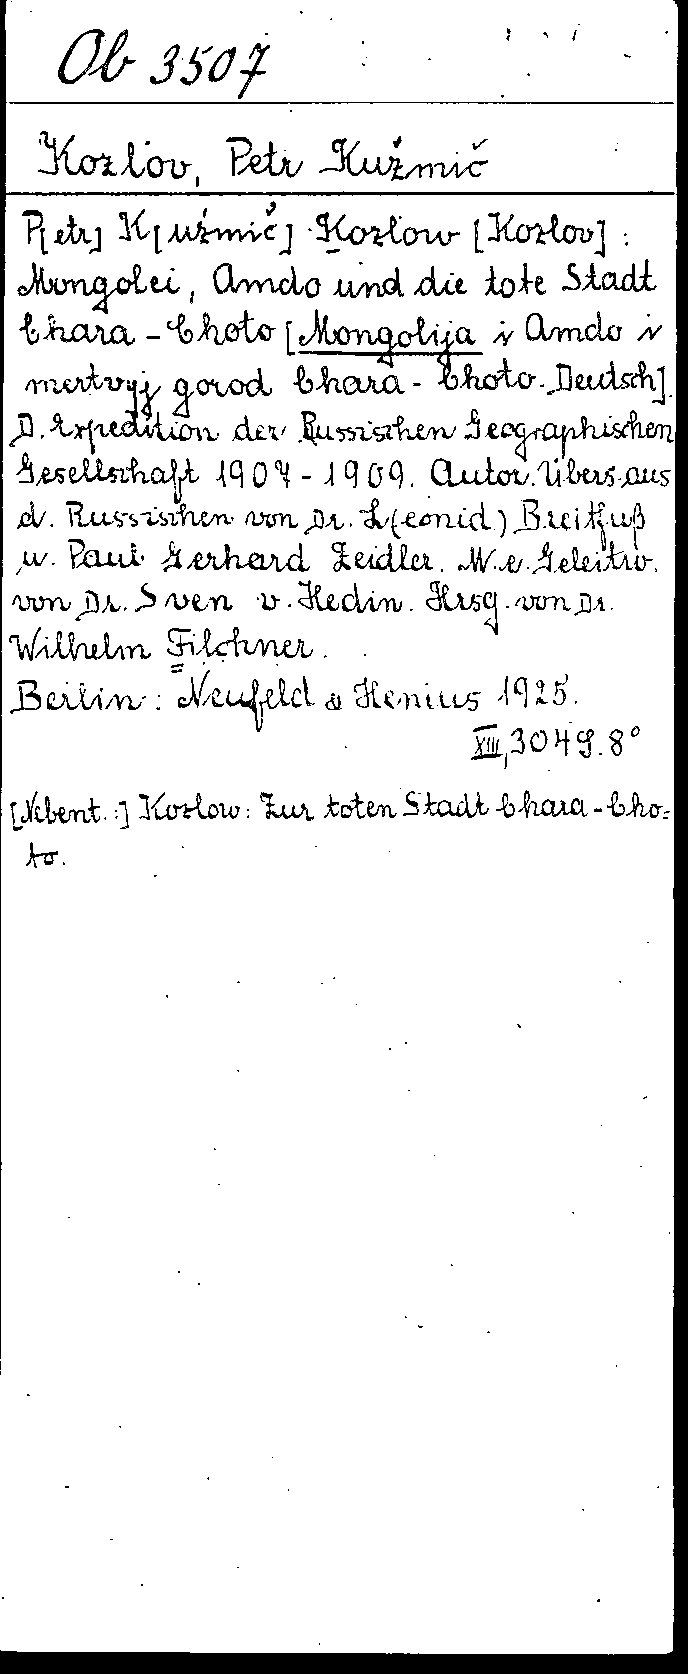 Ob 3507
Kozlov, Petr Kuźmič
P[etr] K[uźmič] Kozlow [Kozlov] :
Mongolei, Amdo und die tote Stadt
Chara-Choto [Mongolija i Amdo i
mertvyj gorod Chara-Choto. Deutsch].
D. Expedition der Russischen Geographischen
Gesellschaft 1907-1909. Autor. Übers. aus
d. Russischen von Dr. L(eonid) Breitfuß
u. Paul Gerhard Zeidler. M. e. Geleitw.
von Dr. Sven v. Hedin. Hrsg. von Dr.
Wilhelm Filchner.
Berlin: Neufeld & Henius 1925.
XIII, 304 S. 8°
[Nebent.:] Kozlow: Zur toten Stadt Chara-Cho=
to.